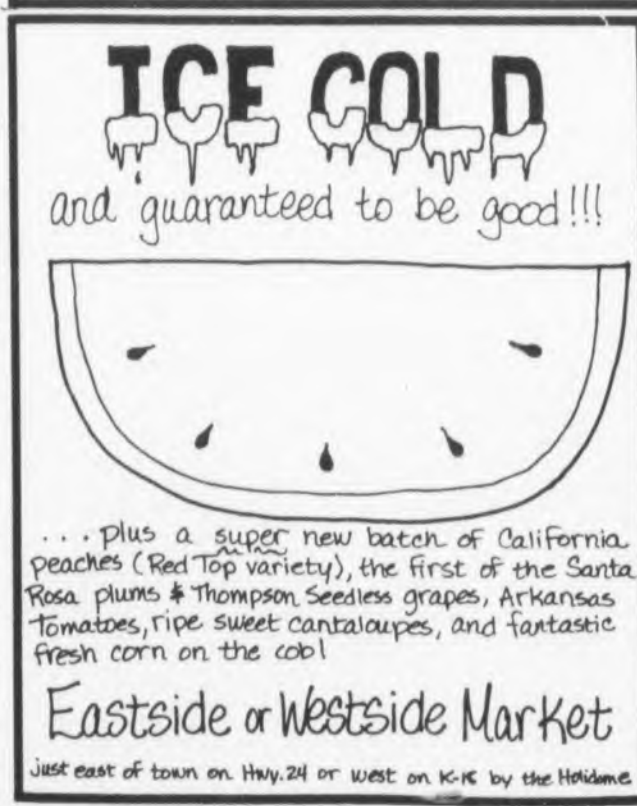 ICE COLD
and guaranteed to be good!!!
...plus a super new batch of California
peaches (Red Top variety), the first of the Santa
Rosa plums & Thompson Seedless grapes, Arkansas
Tomatoes, ripe sweet cantaloupes, and fantastic
fresh corn on the cob!
Eastside or Westside Market
just east of town on Hwy. 24 or west on K-18 by the Holidome